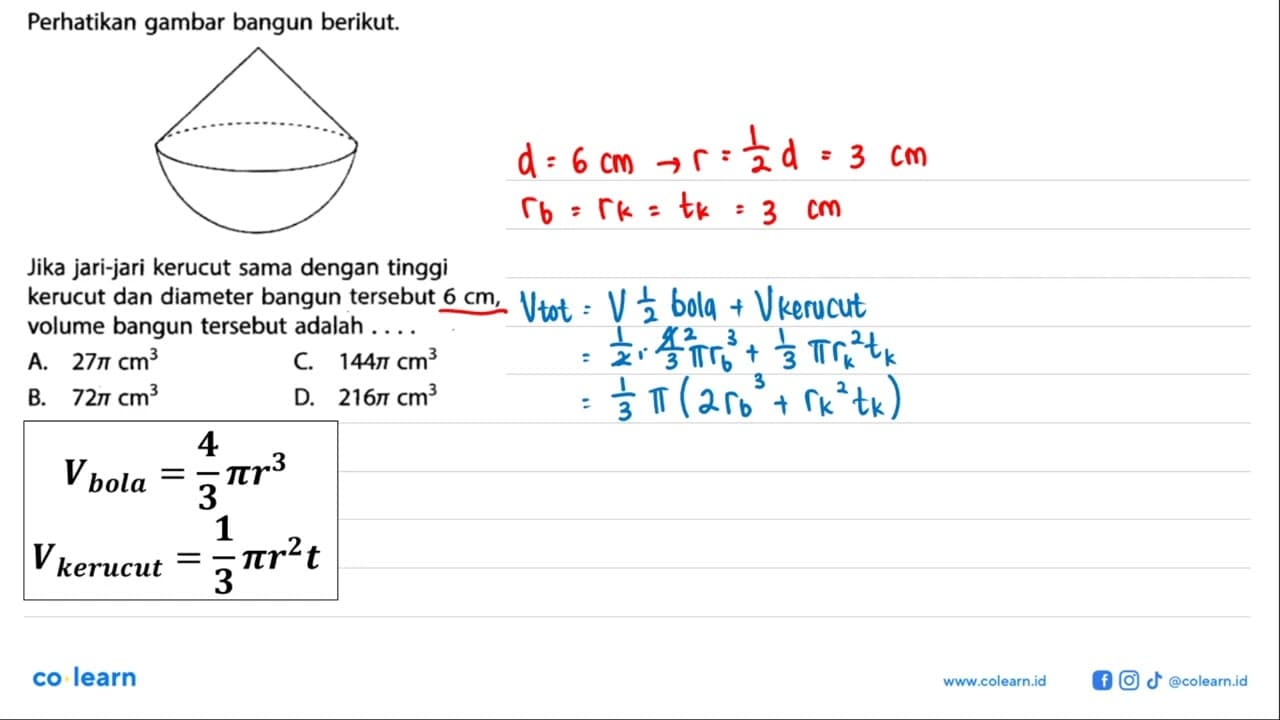 Perhatikan gambar bangun berikut.
Jika jari-jari kerucut sama dengan tinggi
kerucut dan diameter bangun tersebut 6 cm,
volume bangun tersebut adalah . . . .
A. 27π cm³ C. 144π cm³
B. 72π cm³ D. 216π cm³
V_bola = 4/3 πr³
V_kerucut = 1/3 πr²t
d = 6 cm → r = 1/2 d = 3 cm
r_b = r_k = t_k = 3 cm
V_tot = V 1/2 bola + V kerucut
= 1/2 · 4/3 ² πr_b³ + 1/3 πr_k² t_k
= 1/3 π (2r_b³ + r_k² t_k)
co learn
www.colearn.id @colearn.id